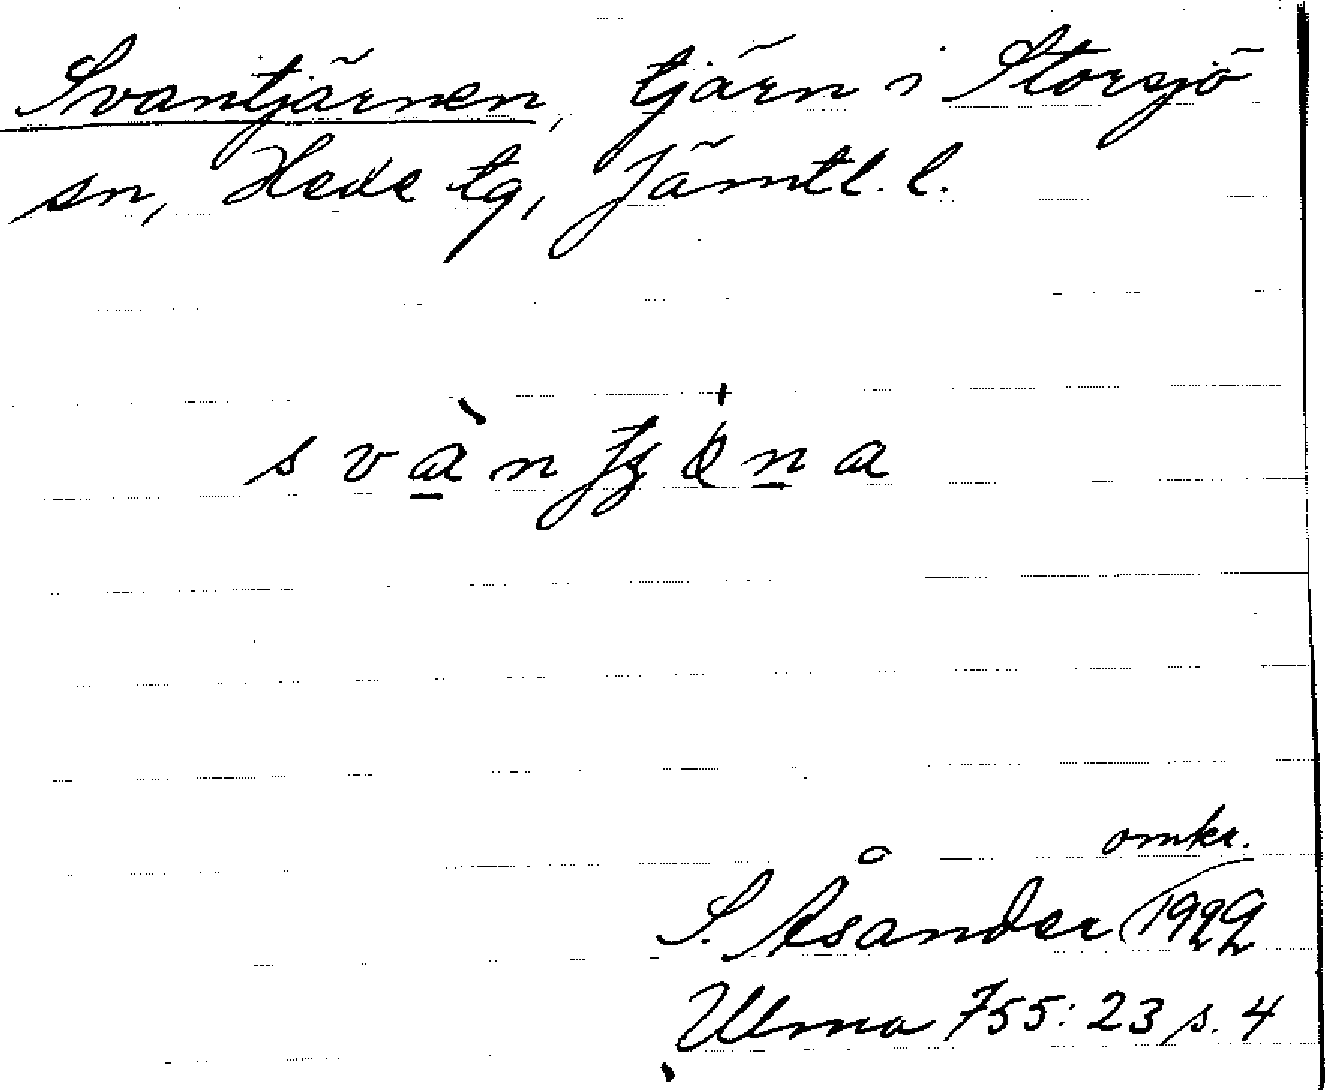 Svantjärnen, tjärn i Storsjö
sn, Hede tg, Jämtl. l.
omkr.
S. Åsander 1922
Ulma 755:23 s. 4